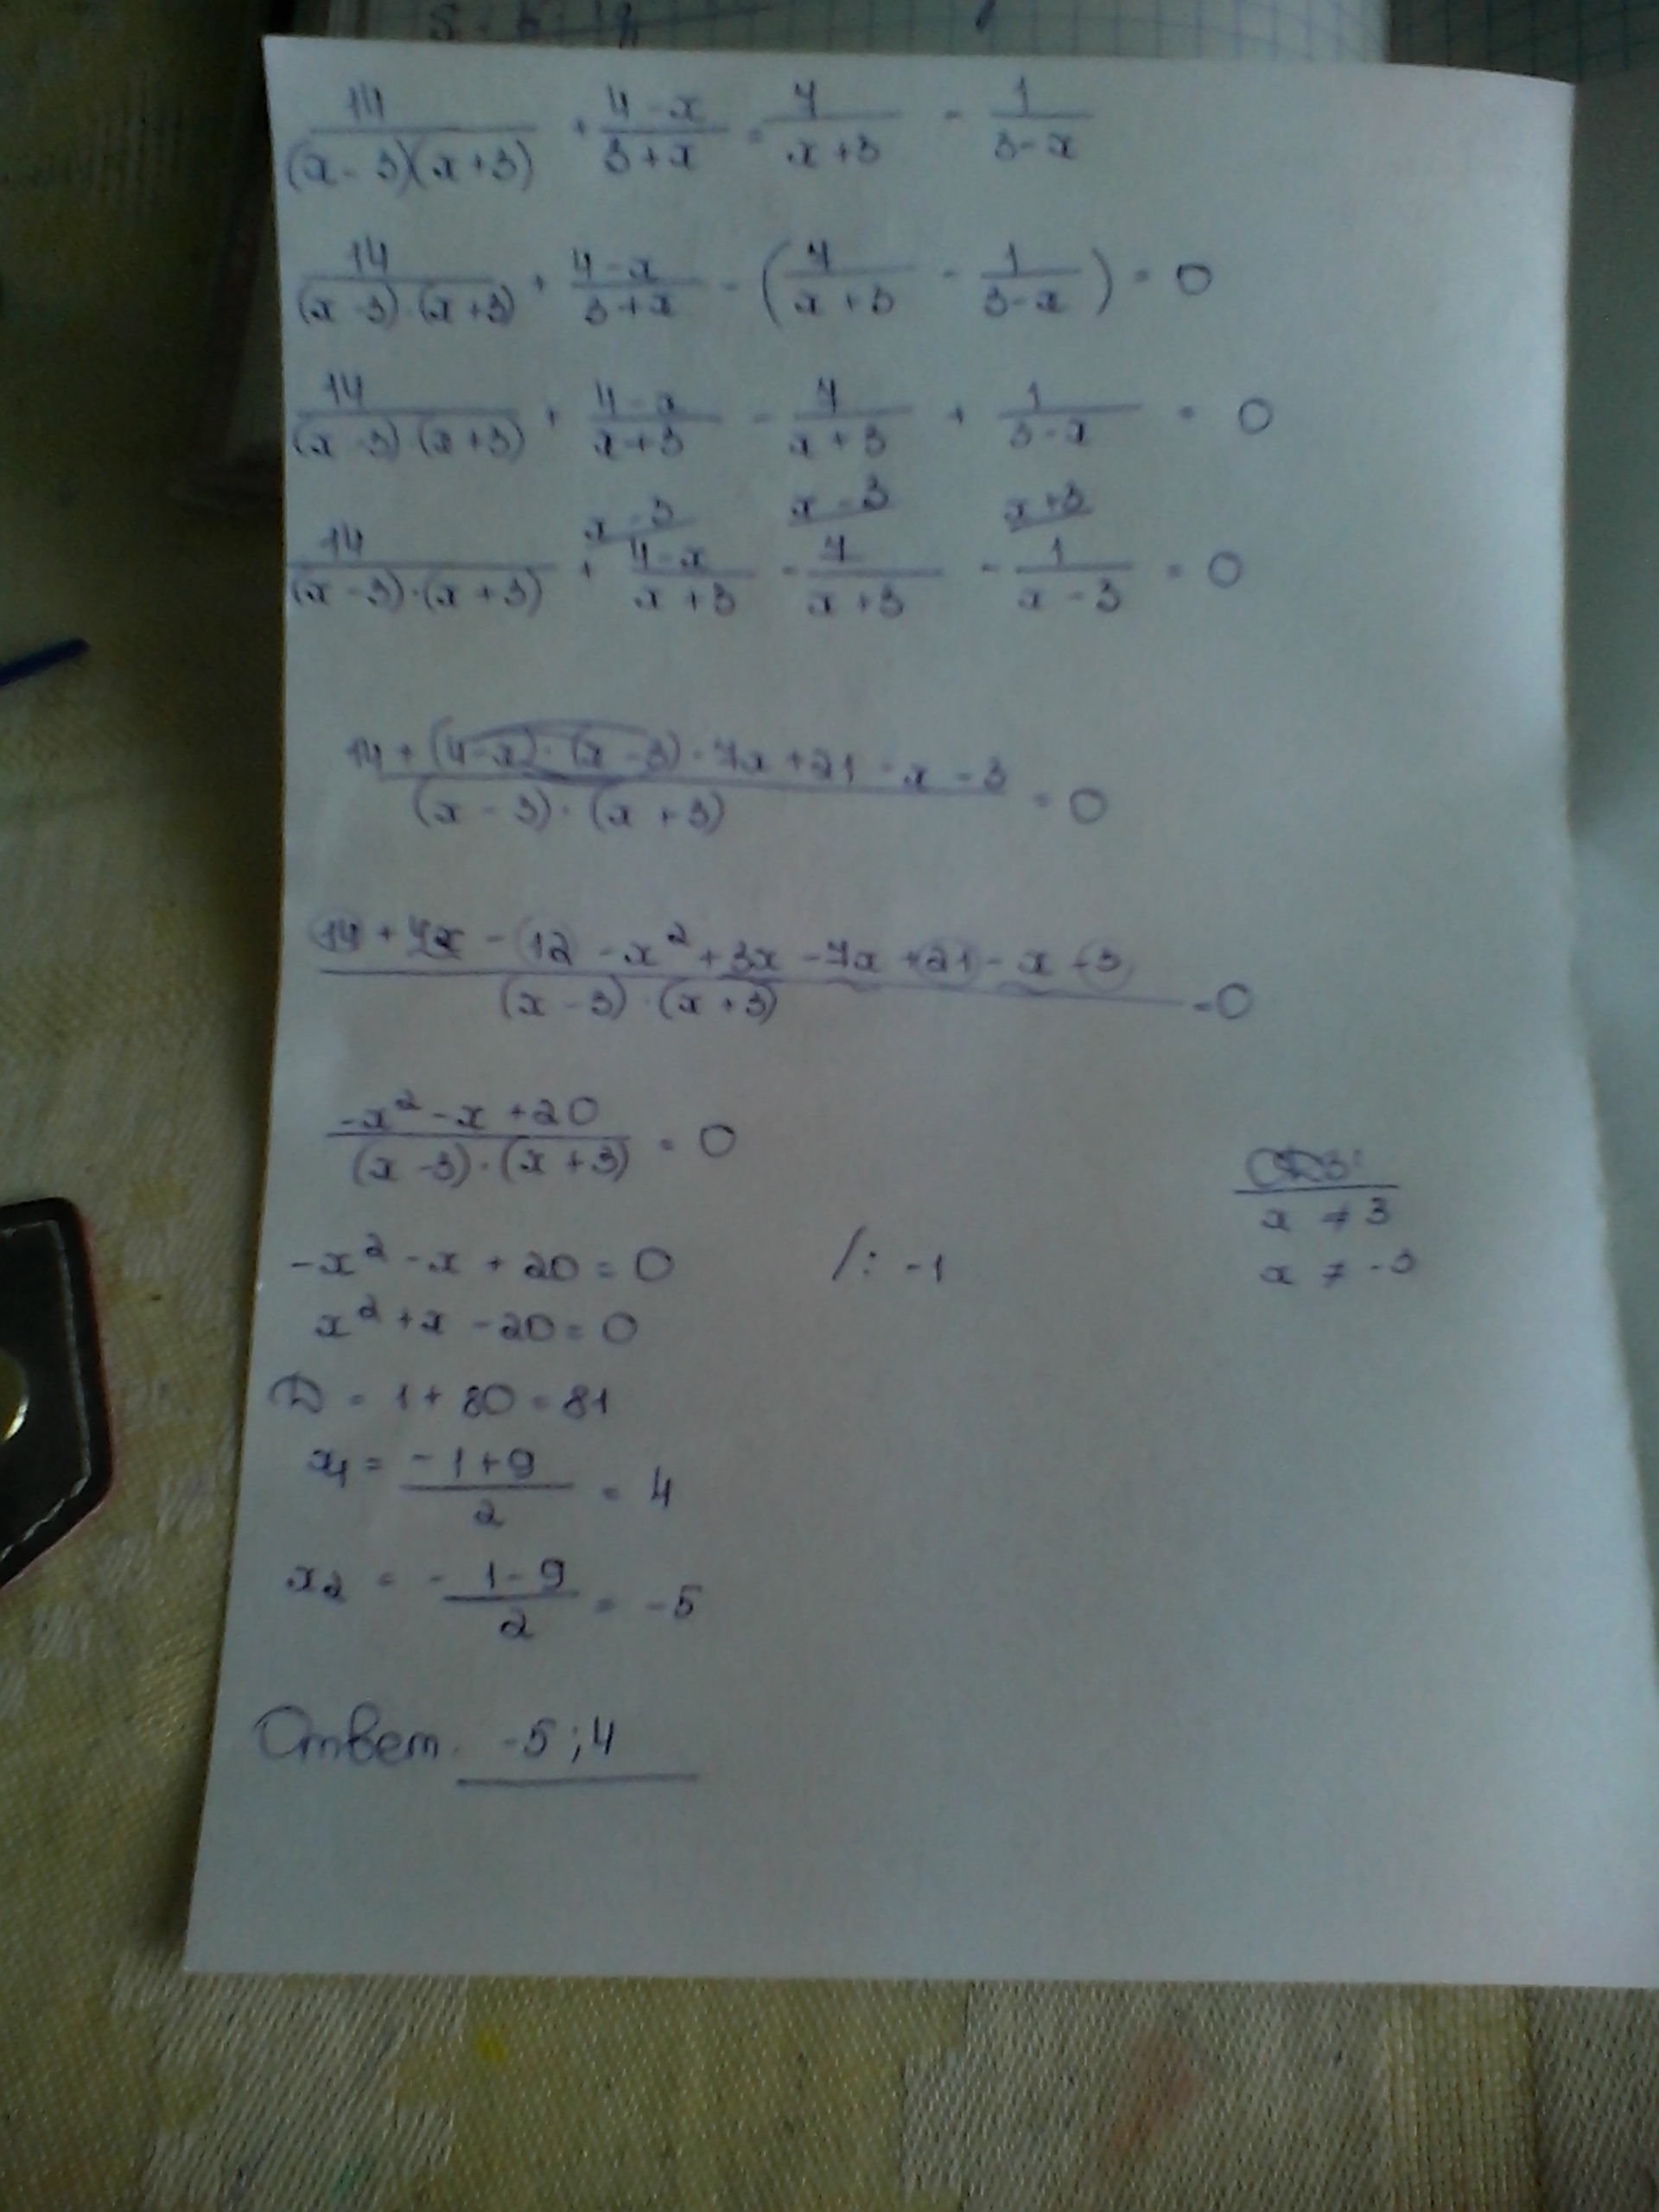 14/((x-3)(x+3)) + (4-x)/(3+x) = 7/(x+3) - 1/(3-x)
14/((x-3)·(x+3)) + (4-x)/(3+x) - (7/(x+3) - 1/(3-x)) = 0
14/((x-3)·(x+3)) + (4-x)/(x+3) - 7/(x+3) + 1/(3-x) = 0
x-3 x-3 x+3
14/((x-3)·(x+3)) + (4-x)/(x+3) - 7/(x+3) - 1/(x-3) = 0
(14+(4-x)·(x-3)-7x+21-x-3)/((x-3)·(x+3)) = 0
(14+4x-12-x²+3x-7x+21-x-3)/((x-3)·(x+3)) = 0
(-x²-x+20)/((x-3)·(x+3)) = 0
ОДЗ:
x ≠ 3
x ≠ -3
-x²-x+20=0 /: -1
x²+x-20=0
D = 1+80=81
x1 = (-1+9)/2 = 4
x2 = -1-9/2 = -5
Ответ. -5;4